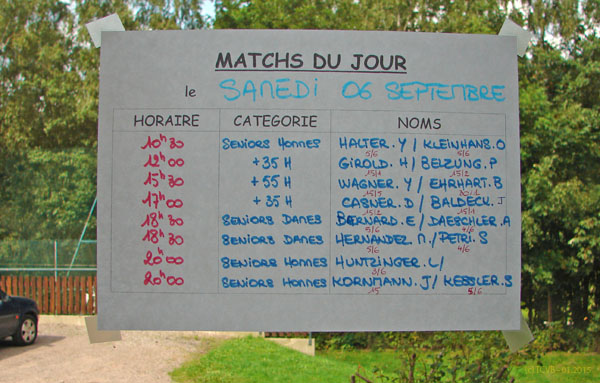 MATCHS DU JOUR
le SAMEDI 06 SEPTEMBRE
HORAIRE CATEGORIE NOMS
10H30 SENIORS HOMMES HALTER.Y / KLEINHANS.O
5/6 5/6
12H00 +35 H GIROLD.H / BELZUNG.P
15/1 15/2
15H30 +55 H WAGNER.Y / EHRHART.B
15/5 30/1
17H00 +35 H CASNER.D / BALDECK.J
15/2 15/1
18H30 SENIORS DAMES BERNARD.E / DAESCHLER.A
5/6 4/6
18H30 SENIORS DAMES HERNANDEZ.M / PETRI.S
5/6 4/6
20H00 SENIORS HOMMES HUNTZINGER.L /
3/6
20H00 SENIORS HOMMES KORNMANN.J / KESSLER.S
15 5/6